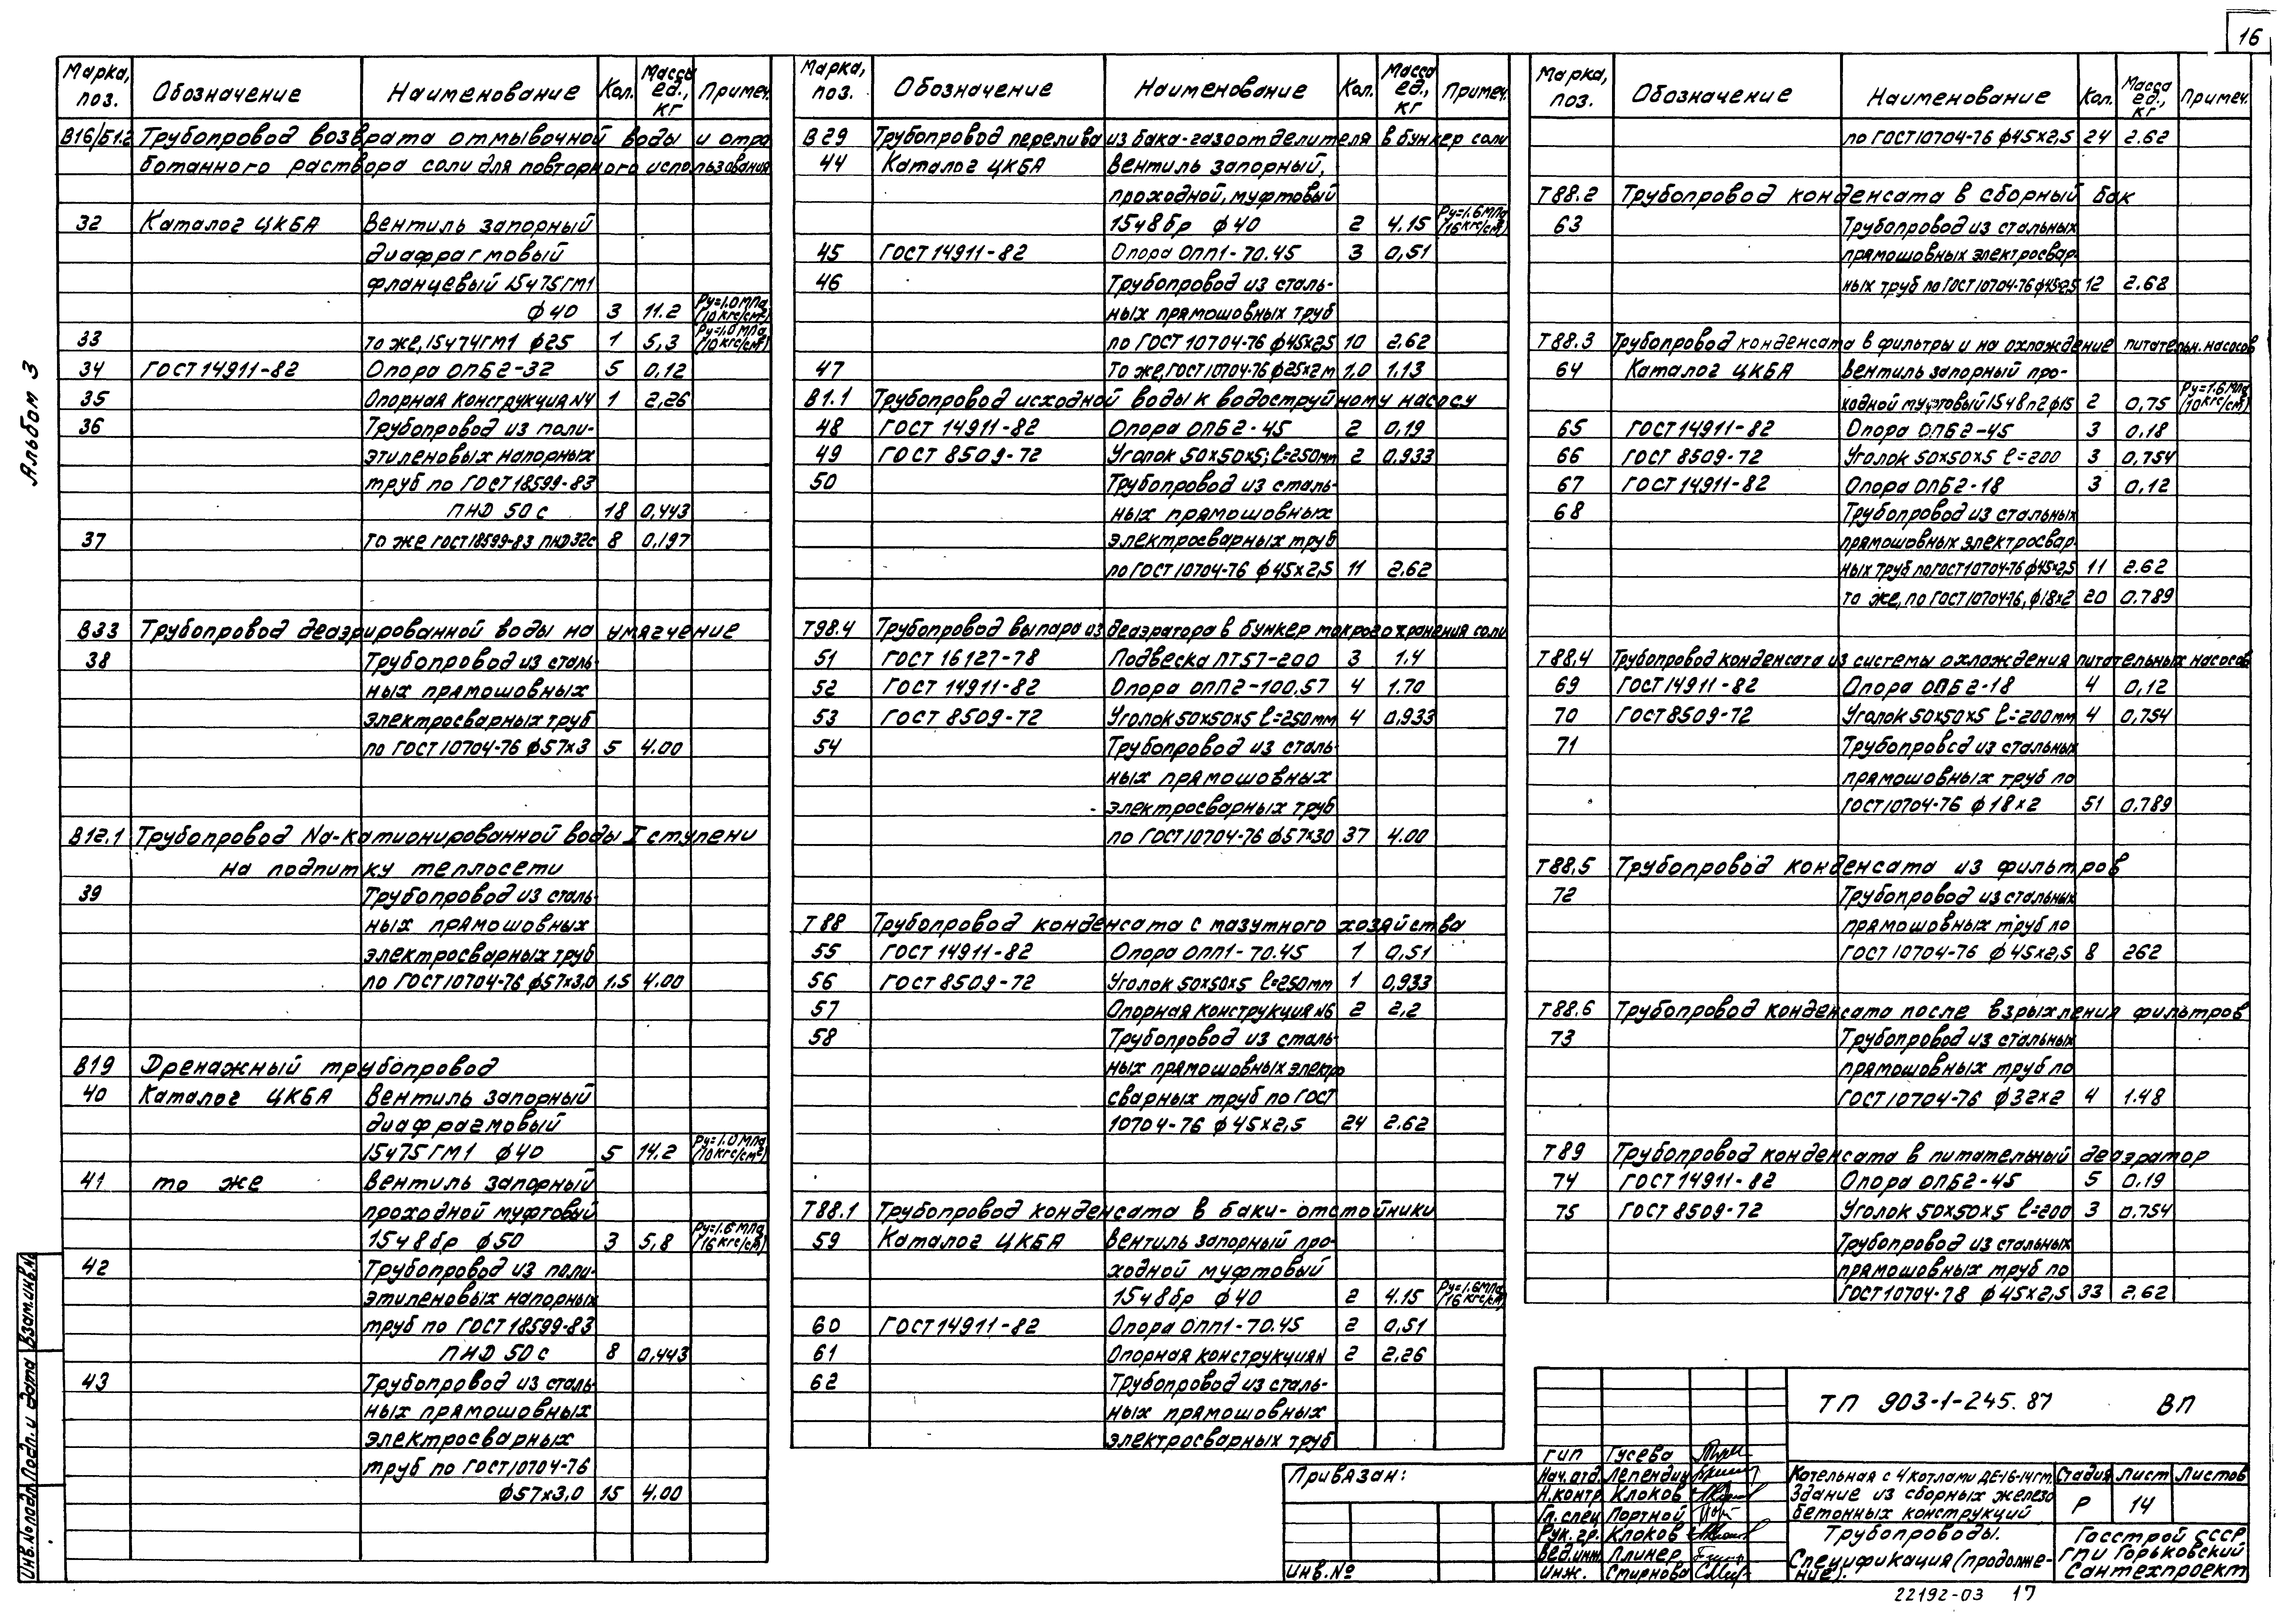 16
Альбом 3
Марка, поз. Обозначение Наименование Кол. Масса ед., кг Примеч.
В16/Б1.2 Трубопровод возврата отмывочной воды и отра
ботанного раствора соли для повторного использования
32 Каталог ЦКБА Вентиль запорный
диафрагмовый
фланцевый 15ч75ГМ1
ф40 3 11.2 Ру=1.0МПа (10кгс/см²)
33 то же, 15ч74ГМ1 ф25 1 5,3 Ру=1.0МПа (10кгс/см²)
34 ГОСТ 14911-82 Опора ОПБ2-32 5 0,12
35 Опорная конструкция N4 1 2,26
36 Трубопровод из поли-
этиленовых напорных
труб по ГОСТ 18599-83
ПНД 50 С 18 0,443
37 То же ГОСТ 18599-83 ПНД 32С 8 0,197
В33 Трубопровод деаэрированной воды на умягчение
38 Трубопровод из сталь-
ных прямошовных
электросварных труб
по ГОСТ 10704-76 ф57х3 5 4.00
В12.1 Трубопровод Na-катионированной воды I ступени
на подпитку теплосети
39 Трубопровод из сталь-
ных прямошовных
электросварных труб
по ГОСТ 10704-76 ф57х3,0 1.5 4.00
В19 Дренажный трубопровод
40 Каталог ЦКБА Вентиль запорный
диафрагмовый
15ч75ГМ1 ф40 5 14.2 Ру=1.0МПа (10кгс/см²)
41 то же Вентиль запорный
проходной муфтовый
15ч8бр ф50 3 5,8 Ру=1.6МПа (16кгс/см²)
42 Трубопровод из поли-
этиленовых напорных
труб по ГОСТ 18599-83
ПНД 50 С 8 0,443
43 Трубопровод из сталь-
ных прямошовных
электросварных
труб по ГОСТ 10704-76
ф57х3,0 15 4.00
Марка, поз. Обозначение Наименование Кол. Масса ед., кг Примеч.
В29 Трубопровод перелива из бака-газоотделителя в бункер соли
44 Каталог ЦКБА Вентиль запорный,
проходной, муфтовый
15ч8бр ф40 2 4.15 Ру=1.6МПа (16кгс/см²)
45 ГОСТ 14911-82 Опора ОПП1-70.45 3 0,51
46 Трубопровод из сталь-
ных прямошовных труб
по ГОСТ 10704-76 ф45х2,5 10 2.62
47 То же, ГОСТ 10704-76 ф25х2 м 1,0 1.13
В1.1 Трубопровод исходной воды к водоструйному насосу
48 ГОСТ 14911-82 Опора ОПБ2-45 2 0,19
49 ГОСТ 8509-72 Уголок 50х50х5; ℓ=250мм 2 0.933
50 Трубопровод из сталь-
ных прямошовных
электросварных труб
по ГОСТ 10704-76 ф45х2,5 11 2.62
Т98.4 Трубопровод выпара из деаэратора в бункер мокрого хранения соли
51 ГОСТ 16127-78 Подвеска ПТ57-200 3 1.4
52 ГОСТ 14911-82 Опора ОПП2-100.57 4 1.70
53 ГОСТ 8509-72 Уголок 50х50х5 ℓ=250мм 4 0,933
54 Трубопровод из сталь-
ных прямошовных
электросварных труб
по ГОСТ 10704-76 ф57х30 37 4.00
Т88 Трубопровод конденсата с мазутного хозяйства
55 ГОСТ 14911-82 Опора ОПП1-70.45 1 0,51
56 ГОСТ 8509-72 Уголок 50х50х5 ℓ=250мм 1 0,933
57 Опорная конструкция N6 2 2,2
58 Трубопровод из сталь-
ных прямошовных электро
сварных труб по ГОСТ
10704-76 ф45х2,5 24 2.62
Т88.1 Трубопровод конденсата в баки-отстойники
59 Каталог ЦКБА Вентиль запорный про-
ходной муфтовый
15ч8бр ф40 2 4.15 Ру=1.6МПа (16кгс/см²)
60 ГОСТ 14911-82 Опора ОПП1-70.45 2 0,51
61 Опорная конструкция 2 2,26
62 Трубопровод из сталь-
ных прямошовных
электросварных труб
Марка, поз. Обозначение Наименование Кол. Масса ед., кг Примеч.
по ГОСТ 10704-76 ф45х2,5 24 2.62
Т88.2 Трубопровод конденсата в сборный бак
63 Трубопровод из стальных
прямошовных электросвар-
ных труб по ГОСТ 10704-76 ф45х2,5 12 2.68
Т88.3 Трубопровод конденсата в фильтры и на охлаждение питательн. насосов
64 Каталог ЦКБА Вентиль запорный про-
ходной муфтовый 15ч8п2 ф15 2 0,75 Ру=1.6МПа (10кгс/см²)
65 ГОСТ 14911-82 Опора ОПБ2-45 3 0.18
66 ГОСТ 8509-72 Уголок 50х50х5 ℓ=200 3 0,754
67 ГОСТ 14911-82 Опора ОПБ2-18 3 0,12
68 Трубопровод из стальных
прямошовных электросвар-
ных труб по ГОСТ 10704-76 ф45х2,5 11 2.62
то же, по ГОСТ 10704-76, ф18х2 20 0.789
Т88.4 Трубопровод конденсата из системы охлаждения питательных насосов
69 ГОСТ 14911-82 Опора ОПБ2-18 4 0,12
70 ГОСТ 8509-72 Уголок 50х50х5 ℓ=200мм 4 0,754
71 Трубопровод из стальных
прямошовных труб по
ГОСТ 10704-76 ф18х2 51 0.789
Т88.5 Трубопровод конденсата из фильтров
72 Трубопровод из стальных
прямошовных труб по
ГОСТ 10704-76 ф45х2,5 8 262
Т88.6 Трубопровод конденсата после взрыхления фильтров
73 Трубопровод из стальных
прямошовных труб по
ГОСТ 10704-76 ф32х2 4 1.48
Т89 Трубопровод конденсата в питательный деаэратор
74 ГОСТ 14911-82 Опора ОПБ2-45 5 0.19
75 ГОСТ 8509-72 Уголок 50х50х5 ℓ=200 3 0.754
Трубопровод из стальных
прямошовных труб по
ГОСТ 10704-78 ф45х2,5 33 2,62
Привязан:
Инв.№
ТП 903-1-245.87 ВП
ГИП Гусева
Нач.отд. Лепендин
Н.контр. Клоков
Гл.спец Портной
Рук.гр. Клоков
Вед.инж. Плинер
Инж. Смирнова
Котельная с 4 котлами ДЕ-16-14ГМ.
Здание из сборных железо
бетонных конструкций
Стадия Лист Листов
Р 14
Трубопроводы.
Спецификация (продолже-
ние).
Госстрой СССР
ГПИ Горьковский
Сантехпроект
22192-03 17
Инв.№подл. Подп. и дата Взам.инв.№